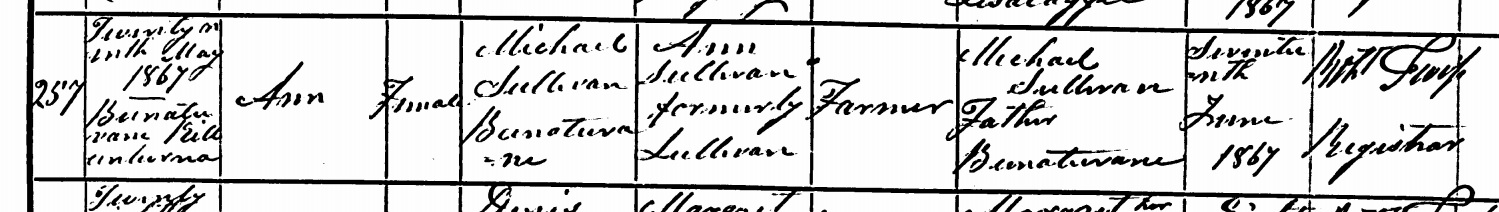 1867
257
Twenty n
inth May
1867
Bunatu
rane Kill
Ann
Female
Michael
Sullivan
Bunatura
-ne
Ann
Sullivan
formerly
Sullivan
Farmer
Michael
Sullivan
Father
Bunaturane
Sevente
enth
June
1867
Robt
Registrar
Twenty
Denis
Margaret
Margaret